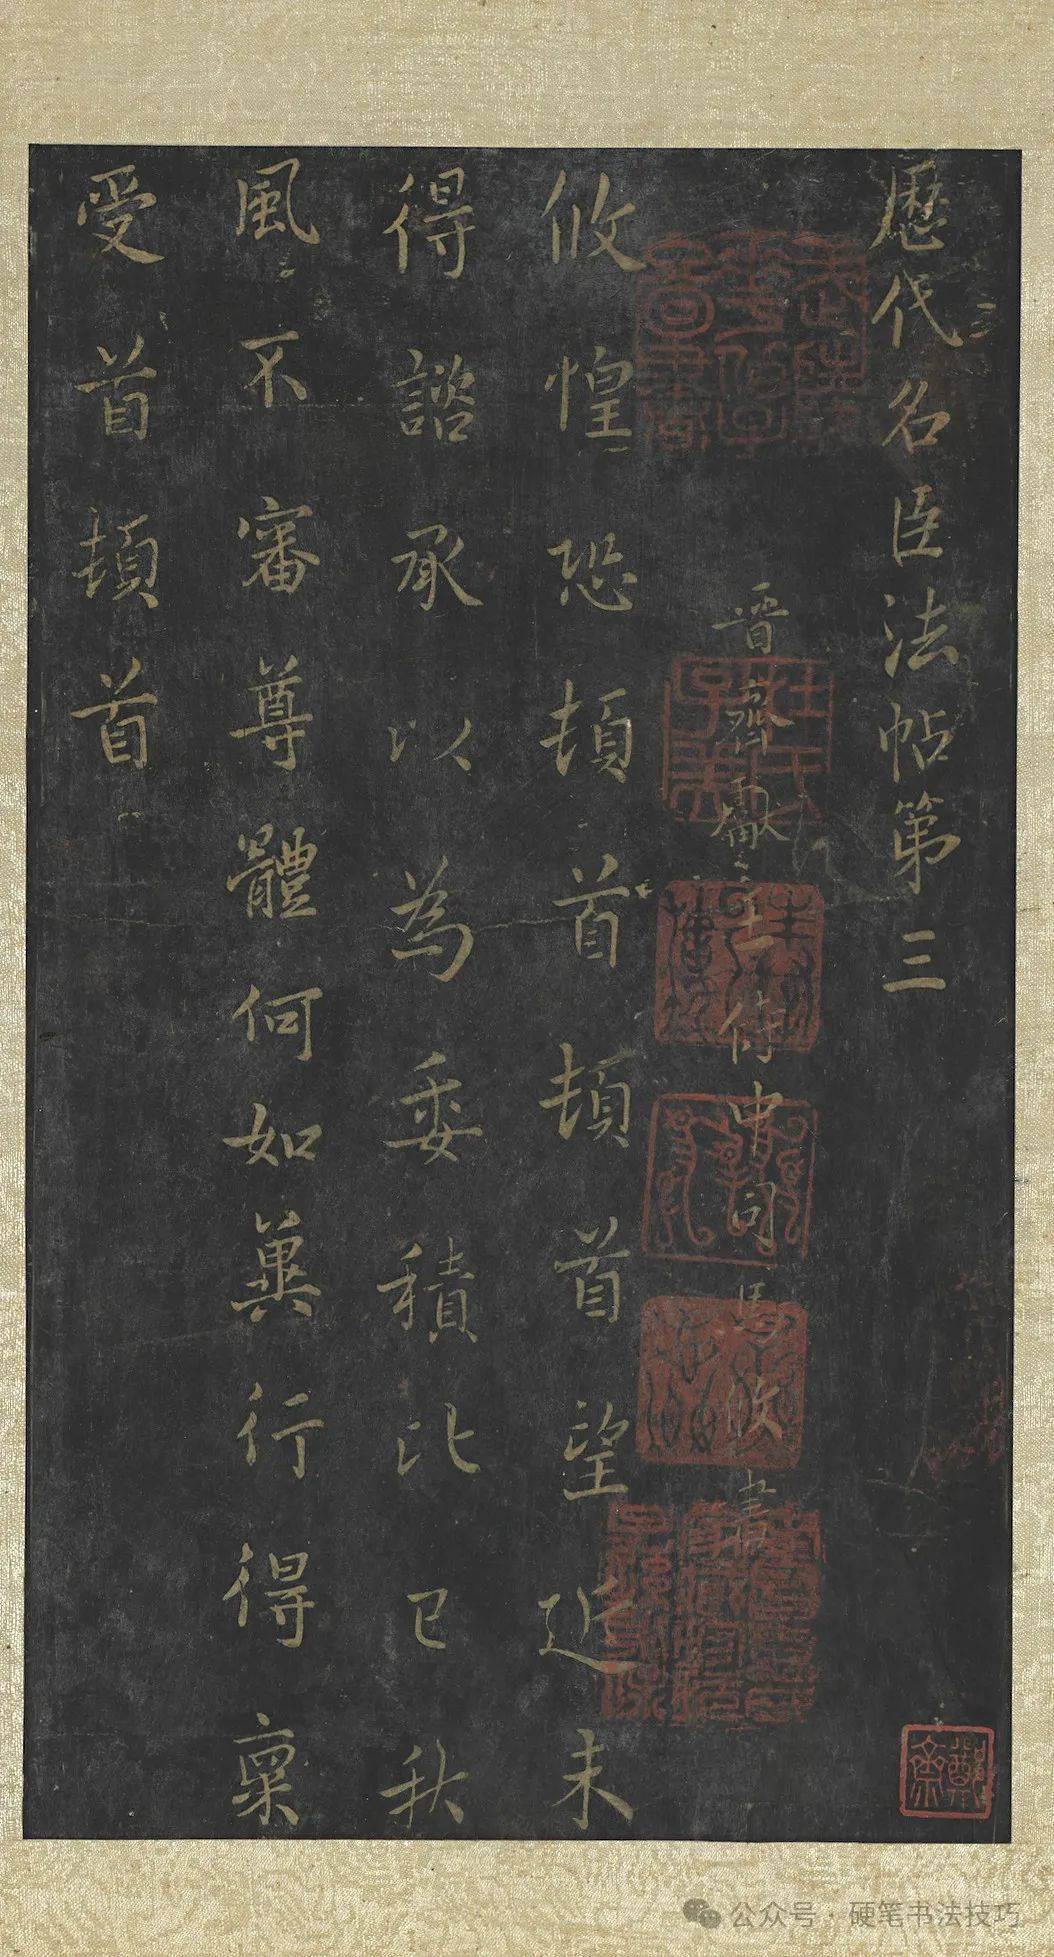 歷代名臣法帖第三
晉齊獻王侍中司馬攸書
攸惶恐頓首頓首望近未
得諮承以為委積比已秋
風不審尊體何如冀行得稟
受首頓首
公众号·硬笔书法技巧